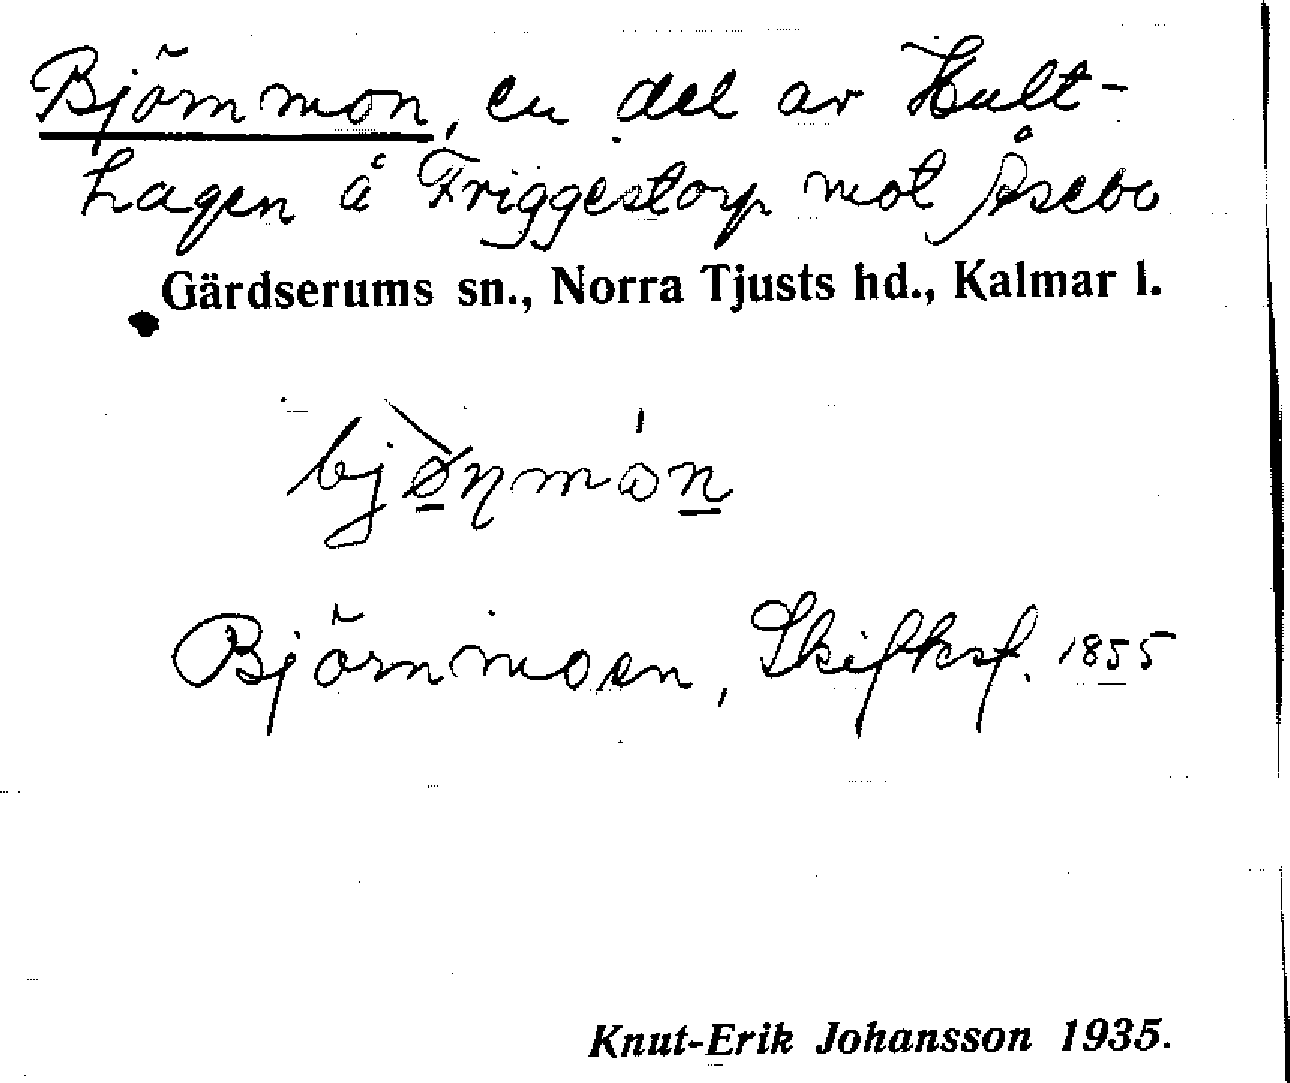 Björnmon, en del av Hult-
hagen å Friggestorp mot Åsebo
Gärdserums sn., Norra Tjusts hd., Kalmar l.
bjø̀ŋmón
Björnmoen, Skifksf. 1855
Knut-Erik Johansson 1935.